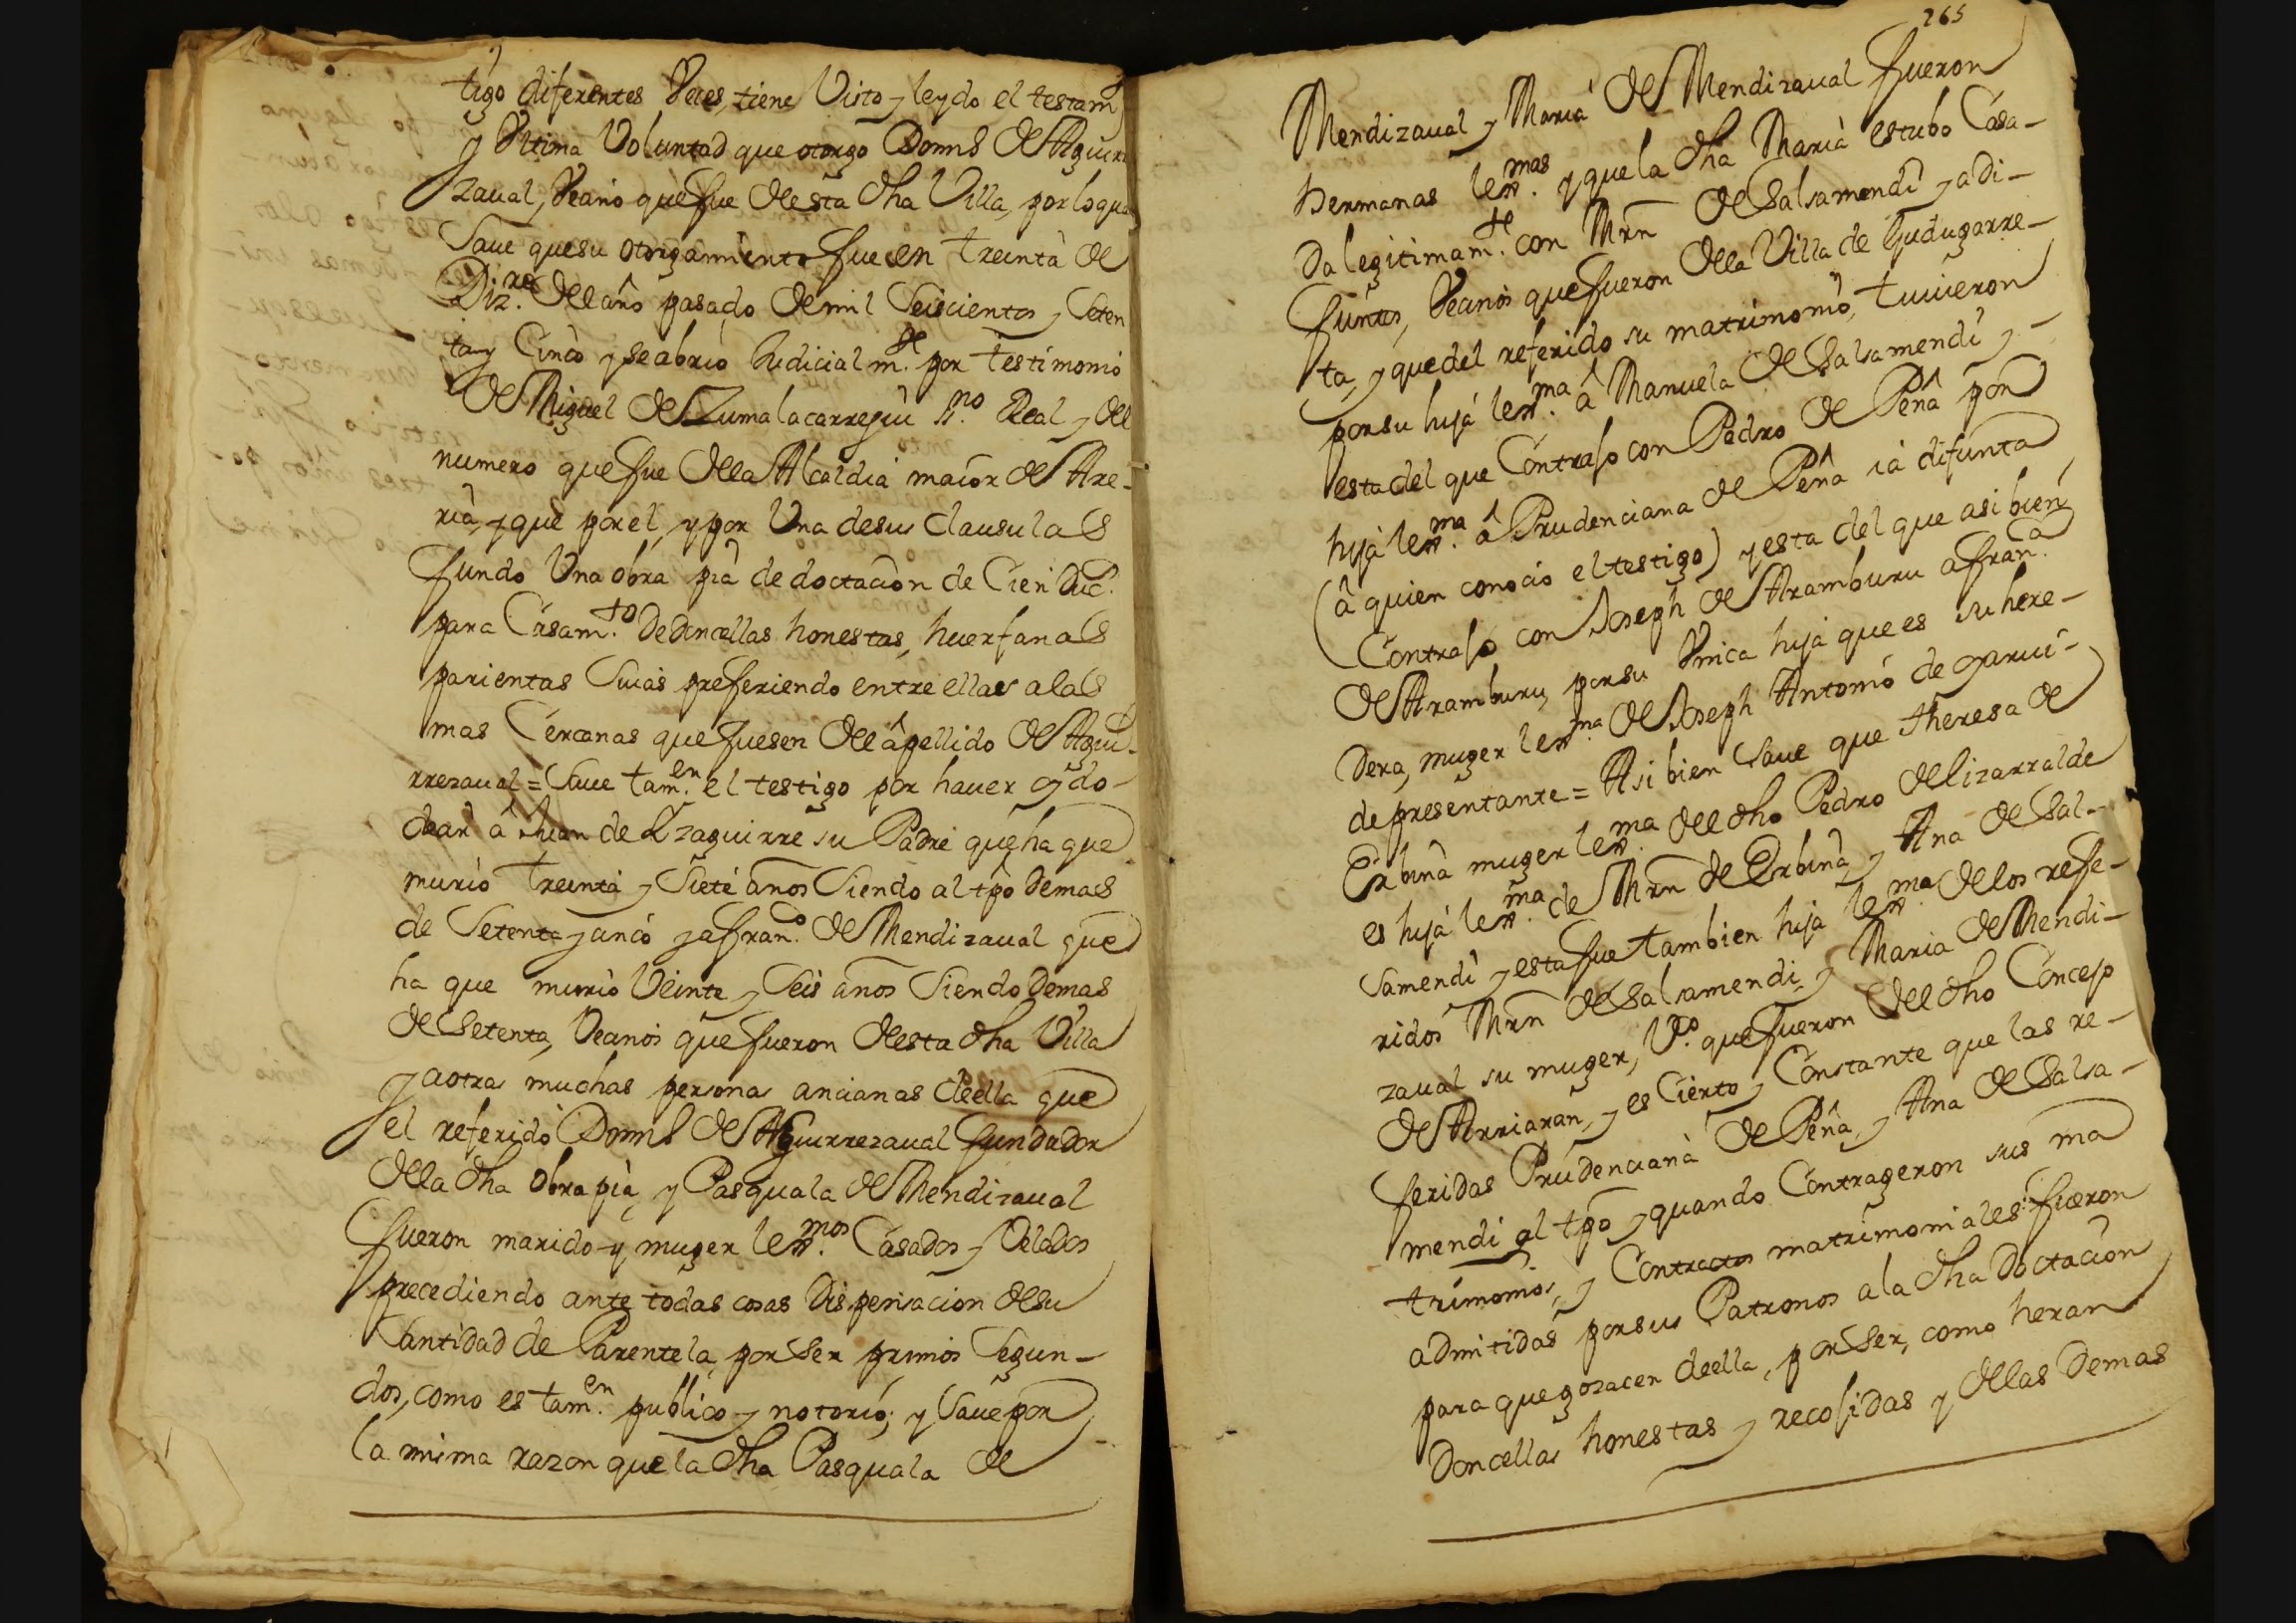 tigo diferentes Veces, tiene Visto y leydo el testam
y Vltima Voluntad que otorgo Doms de Aguirre
zaual, Veçino que fue de esta dha Villa, por lo qual
Saue que su otorgamiento fue en treinta de
Diz.re del año pasado de mil Seiscientos y Seten
ta y Cinco y se abrio Judicialm.te por testimonio
de Miguel de Zumalacarregui ss.no Real y del
numero que fue de la Alcaldia maior de Are-
ria, y que por el, y por Una de sus Clausulas
fundo Una obra pia de doctacion de Cien Duc.s
para Casam.to de doncellas honestas, huerfanas
parientas Suias prefiriendo entre ellas a las
mas Cercanas que fuesen del apellido de Agui-
rrezaual = Saue tam.en el testigo por hauer oydo-
decir â Juan de Yzaguirre su Padre que ha que
murio treinta y Siete años Siendo al tpo de mas
de Setenta y cinco y a fran.co de Mendizaual que
ha que murio Veinte y Seis años Siendo de mas
de Setenta, Veçinos que fueron de esta dha Villa
y a otras muchas personas ancianas de ella que
el referido Doms de Aguirrezaual fundador
de la dha obra pia, y Pasquala de Mendizaual
fueron marido y muger lexmos. Casados y Velados
precediendo ante todas cosas Dispensacion de su
Santidad de Parentela por Ser primos Segun-
dos, como es tam.en publico y notorio; y Saue por
la misma razon que la dha Pasquala de
265
Mendizaual y Maria de Mendizaual fueron
hermanas lexmas. y que la dha Maria estubo Casa-
da legitimam.te con Mrn de Salsamendi y a Di-
funtos, Veçinos que fueron de la Villa de Gudugarre-
ta, y que del referido su matrimonio, tuuieron
por su hija lexma. â Manuela de Salsamendi y-
esta del que Contrajo con Pedro de Peña por
hija lexma. â Prudenciana de Peña ia difunta
(â quien conocio el testigo) y esta del que asi bien
Contrajo con Joseph de Aramburu a fran.ca
de Aramburu, por su Vnica hija que es su here-
dera, muger lexma de Joseph Antonio de Garui-
de presentante = Asi bien Saue que theresa de
Erbina muger lexma. del dho Pedro de Lizarralde
es hija lexma. de Mrn de Erbina, y Ana de Sal-
samendi y esta fue tambien hija lexma. de los refe-
ridos Mrn de Salsamendi, y Maria de Mendi-
zaual su muger, V.os que fueron del dho Concejo
de Arriaran, y es Cierto y Constante que las re-
feridas Prudenciana de Peña, y Ana de Salsa-
mendi al tpo y quando Contrageron sus ma
trimonios, y Contractos matrimoniales: fueron
admitidas por sus Patronos a la dha Doctacion
para que gozacen de ella, por Ser, como heran
Doncellas honestas y recojidas y de las Demas